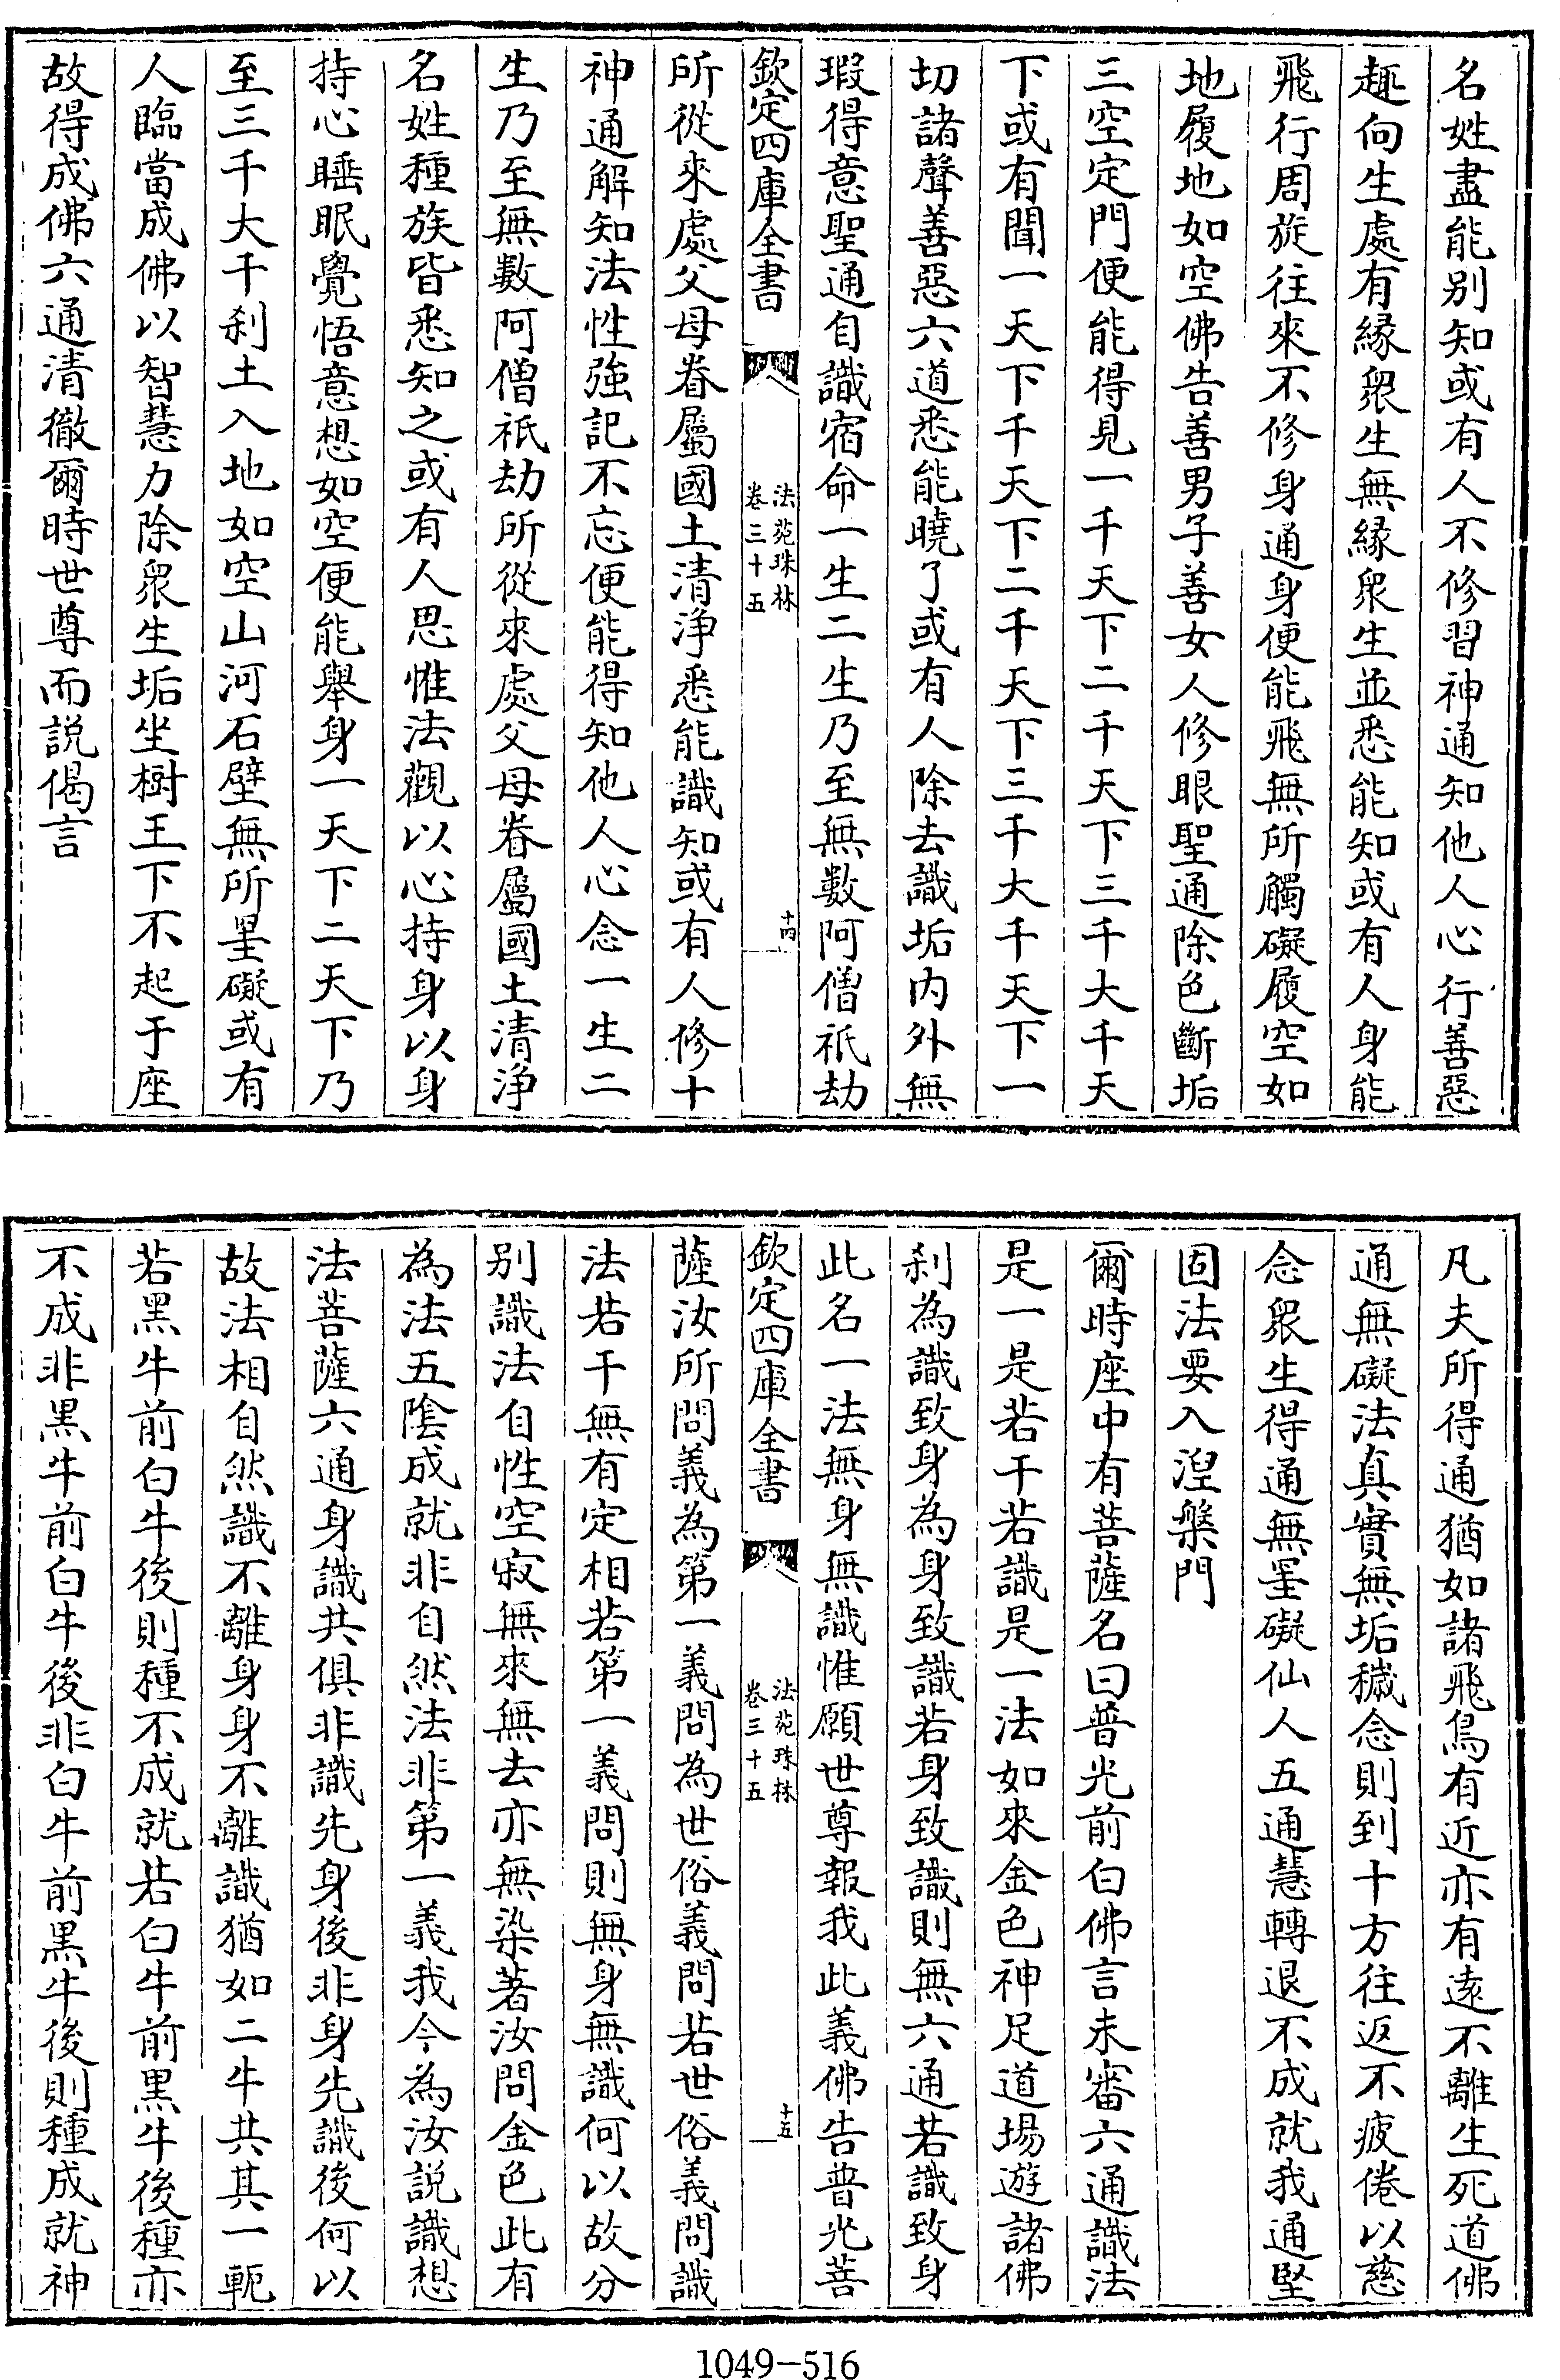 名姓盡能别知或有人不修習神通知他人心行善惡
趣向生處有縁衆生無縁衆生並悉能知或有人身能
飛行周旋往來不修身通身便能飛無所觸礙履空如
地履地如空佛告善男子善女人修眼聖通除色斷垢
三空定門便能得見一千天下二千天下三千大千天
下或有聞一天下千天下二千天下三千大千天下一
切諸聲善惡六道悉能曉了或有人除去識垢内外無
瑕得意聖通自識宿命一生二生乃至無數阿僧祇劫
欽定四庫全書
法苑珠林
卷三十五
十四
所從來處父母眷屬國土清浄悉能識知或有人修十
神通解知法性強記不忘便能得知他人心念一生二
生乃至無數阿僧祇劫所從來處父母眷屬國土清浄
名姓種族皆悉知之或有人思惟法觀以心持身以身
持心睡眠覺悟意想如空便能舉身一天下二天下乃
至三千大千刹土入地如空山河石壁無所罣礙或有
人臨當成佛以智慧力除衆生垢坐樹王下不起于座
故得成佛六通清徹爾時世尊而説偈言
凡夫所得通猶如諸飛鳥有近亦有遠不離生死道佛
通無礙法真實無垢穢念則到十方往返不疲倦以慈
念衆生得通無罣礙仙人五通慧轉退不成就我通堅
固法要入涅槃門
爾時座中有菩薩名曰普光前白佛言未審六通識法
是一是若干若識是一法如來金色神足道場遊諸佛
刹為識致身為身致識若身致識則無六通若識致身
此名一法無身無識惟願世尊報我此義佛告普光菩
欽定四庫全書
法苑珠林
卷三十五
十五
薩汝所問義為第一義問為世俗義問若世俗義問識
法若干無有定相若第一義問則無身無識何以故分
别識法自性空寂無來無去亦無染著汝問金色此有
為法五陰成就非自然法非第一義我今為汝説識想
法菩薩六通身識共俱非識先身後非身先識後何以
故法相自然識不離身身不離識猶如二牛共其一軛
若黑牛前白牛後則種不成就若白牛前黑牛後種亦
不成非黑牛前白牛後非白牛前黑牛後則種成就神
1049-516